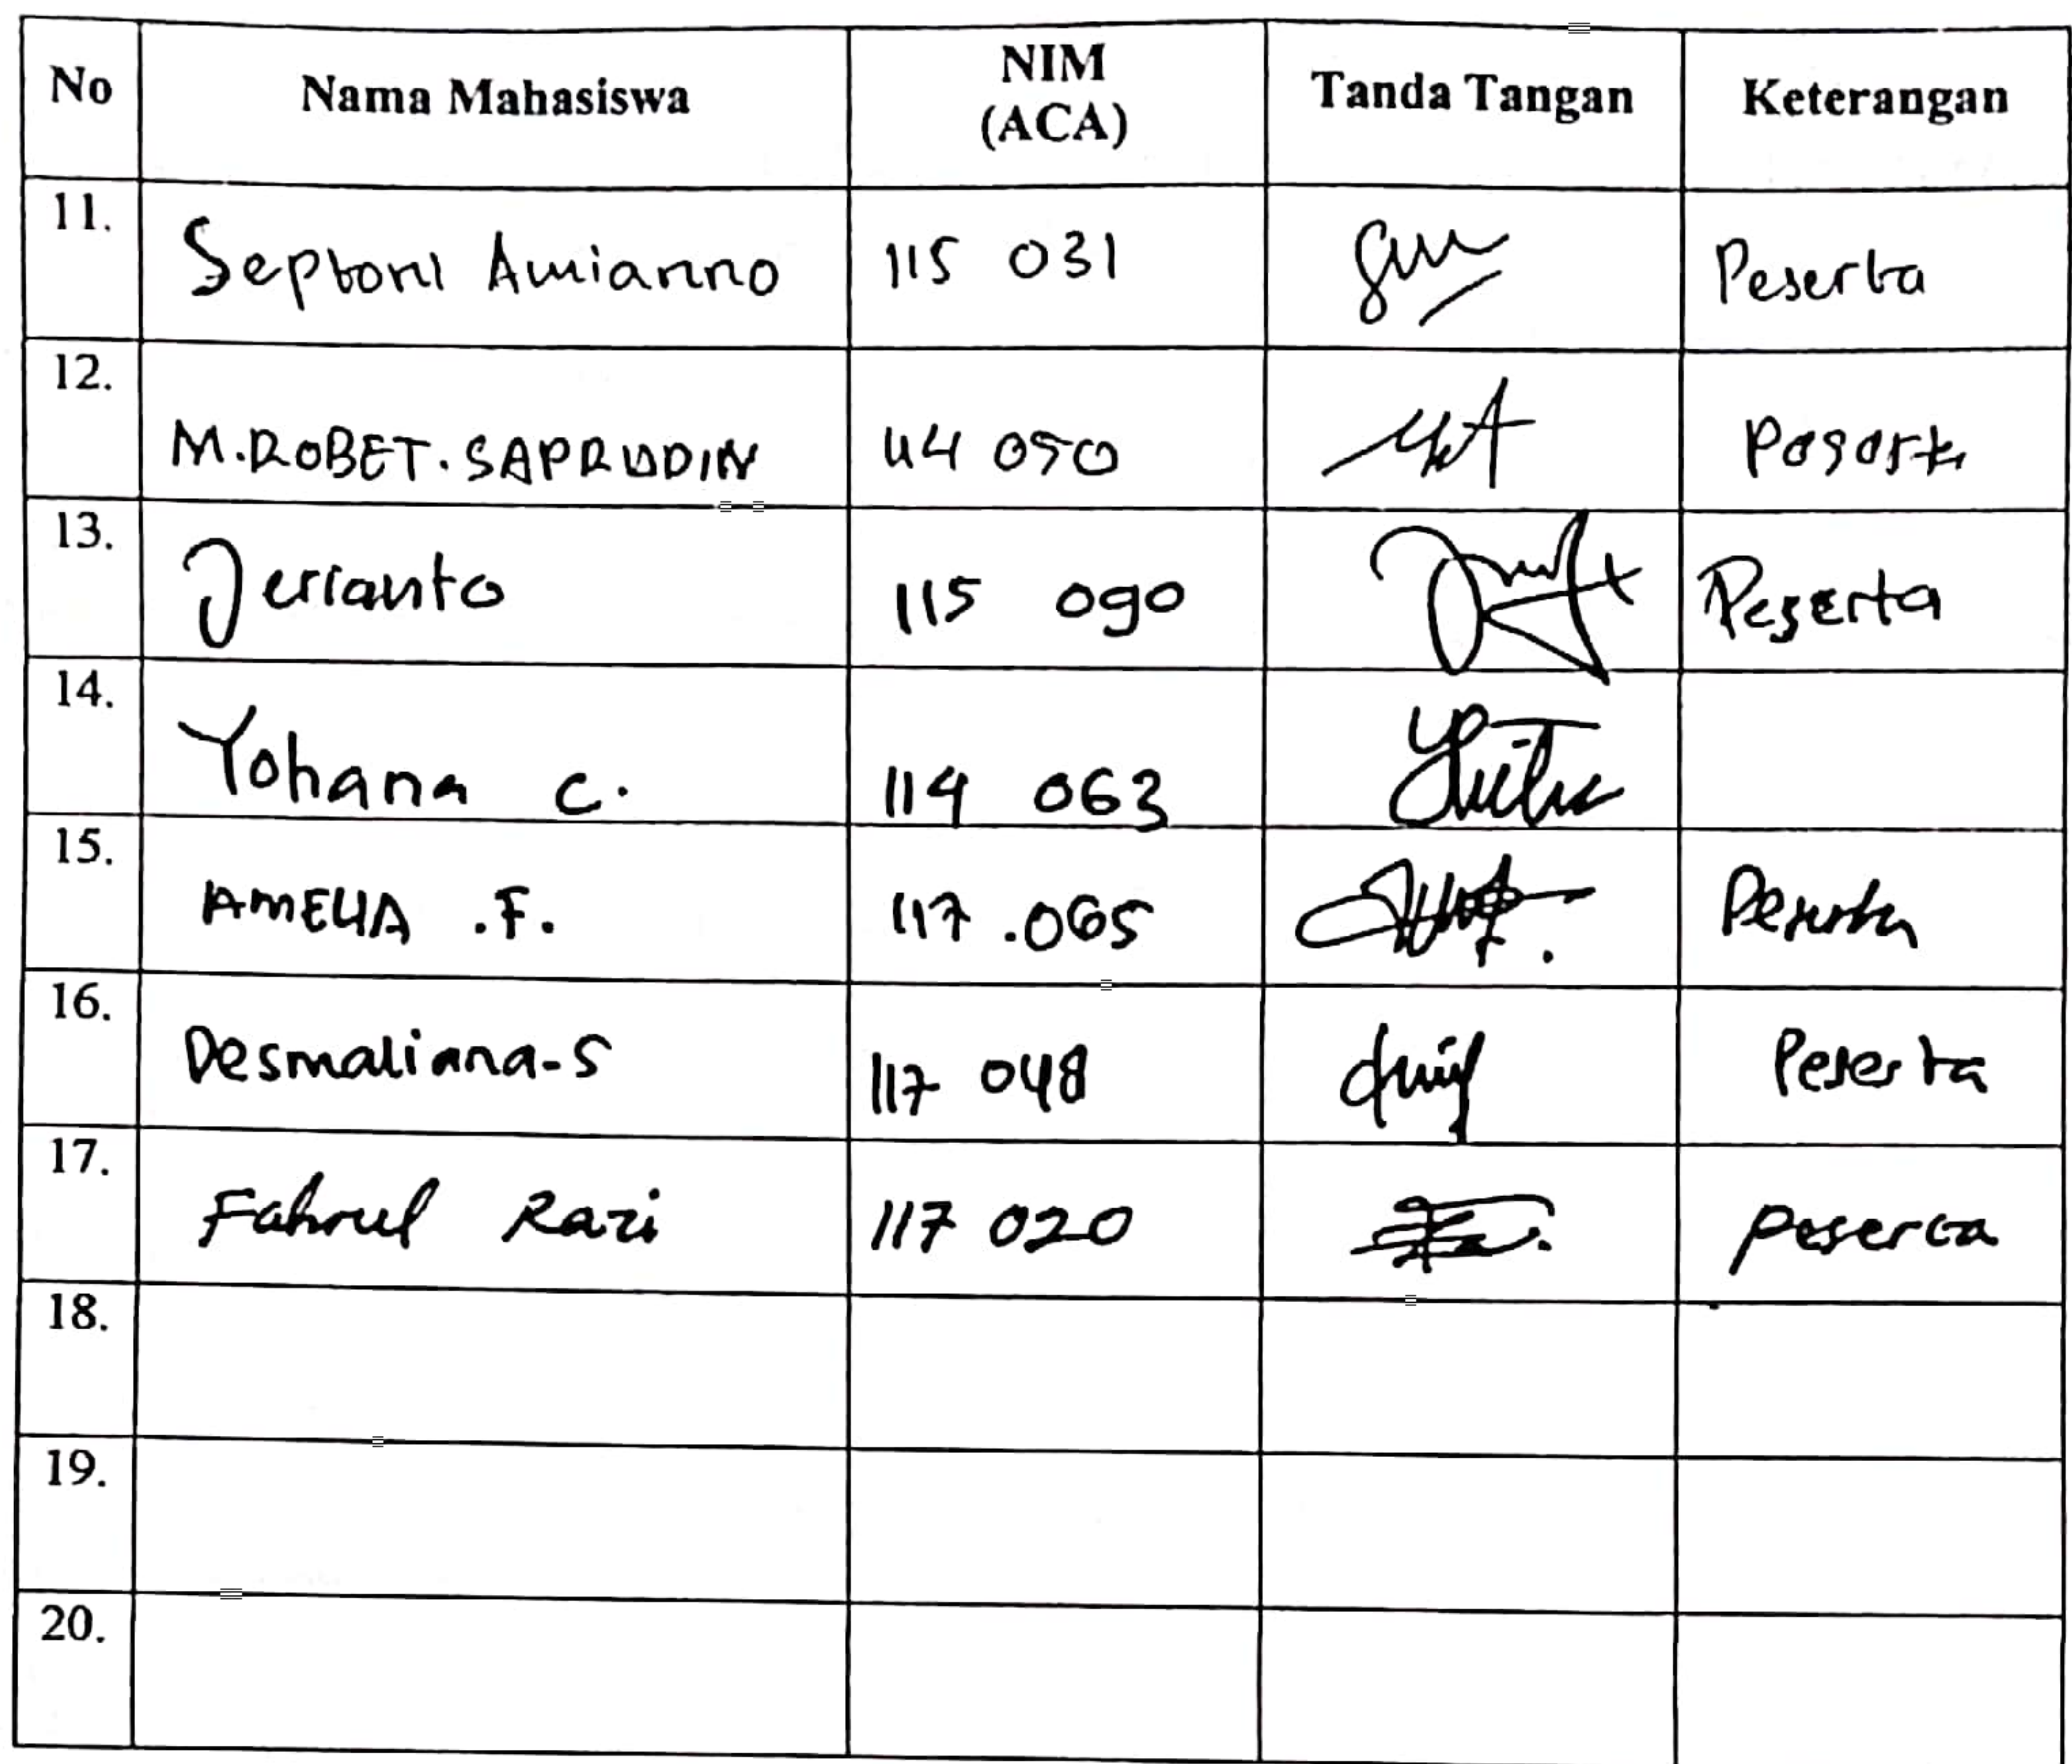 No Nama Mahasiswa NIM (ACA) Tanda Tangan Keterangan
11. Septoni Amianno 115 031 Peserta
12. M.ROBET.SAPRUDIN 114 050
13. Jerianto 115 090 Peserta
14. Yohana C. 114 063
15. AMELIA .F. 117 .065 Peserta
16. Desmaliana-S 117 048 Peserta
17. Fahrul Razi 117 020 Peserta
18.
19.
20.